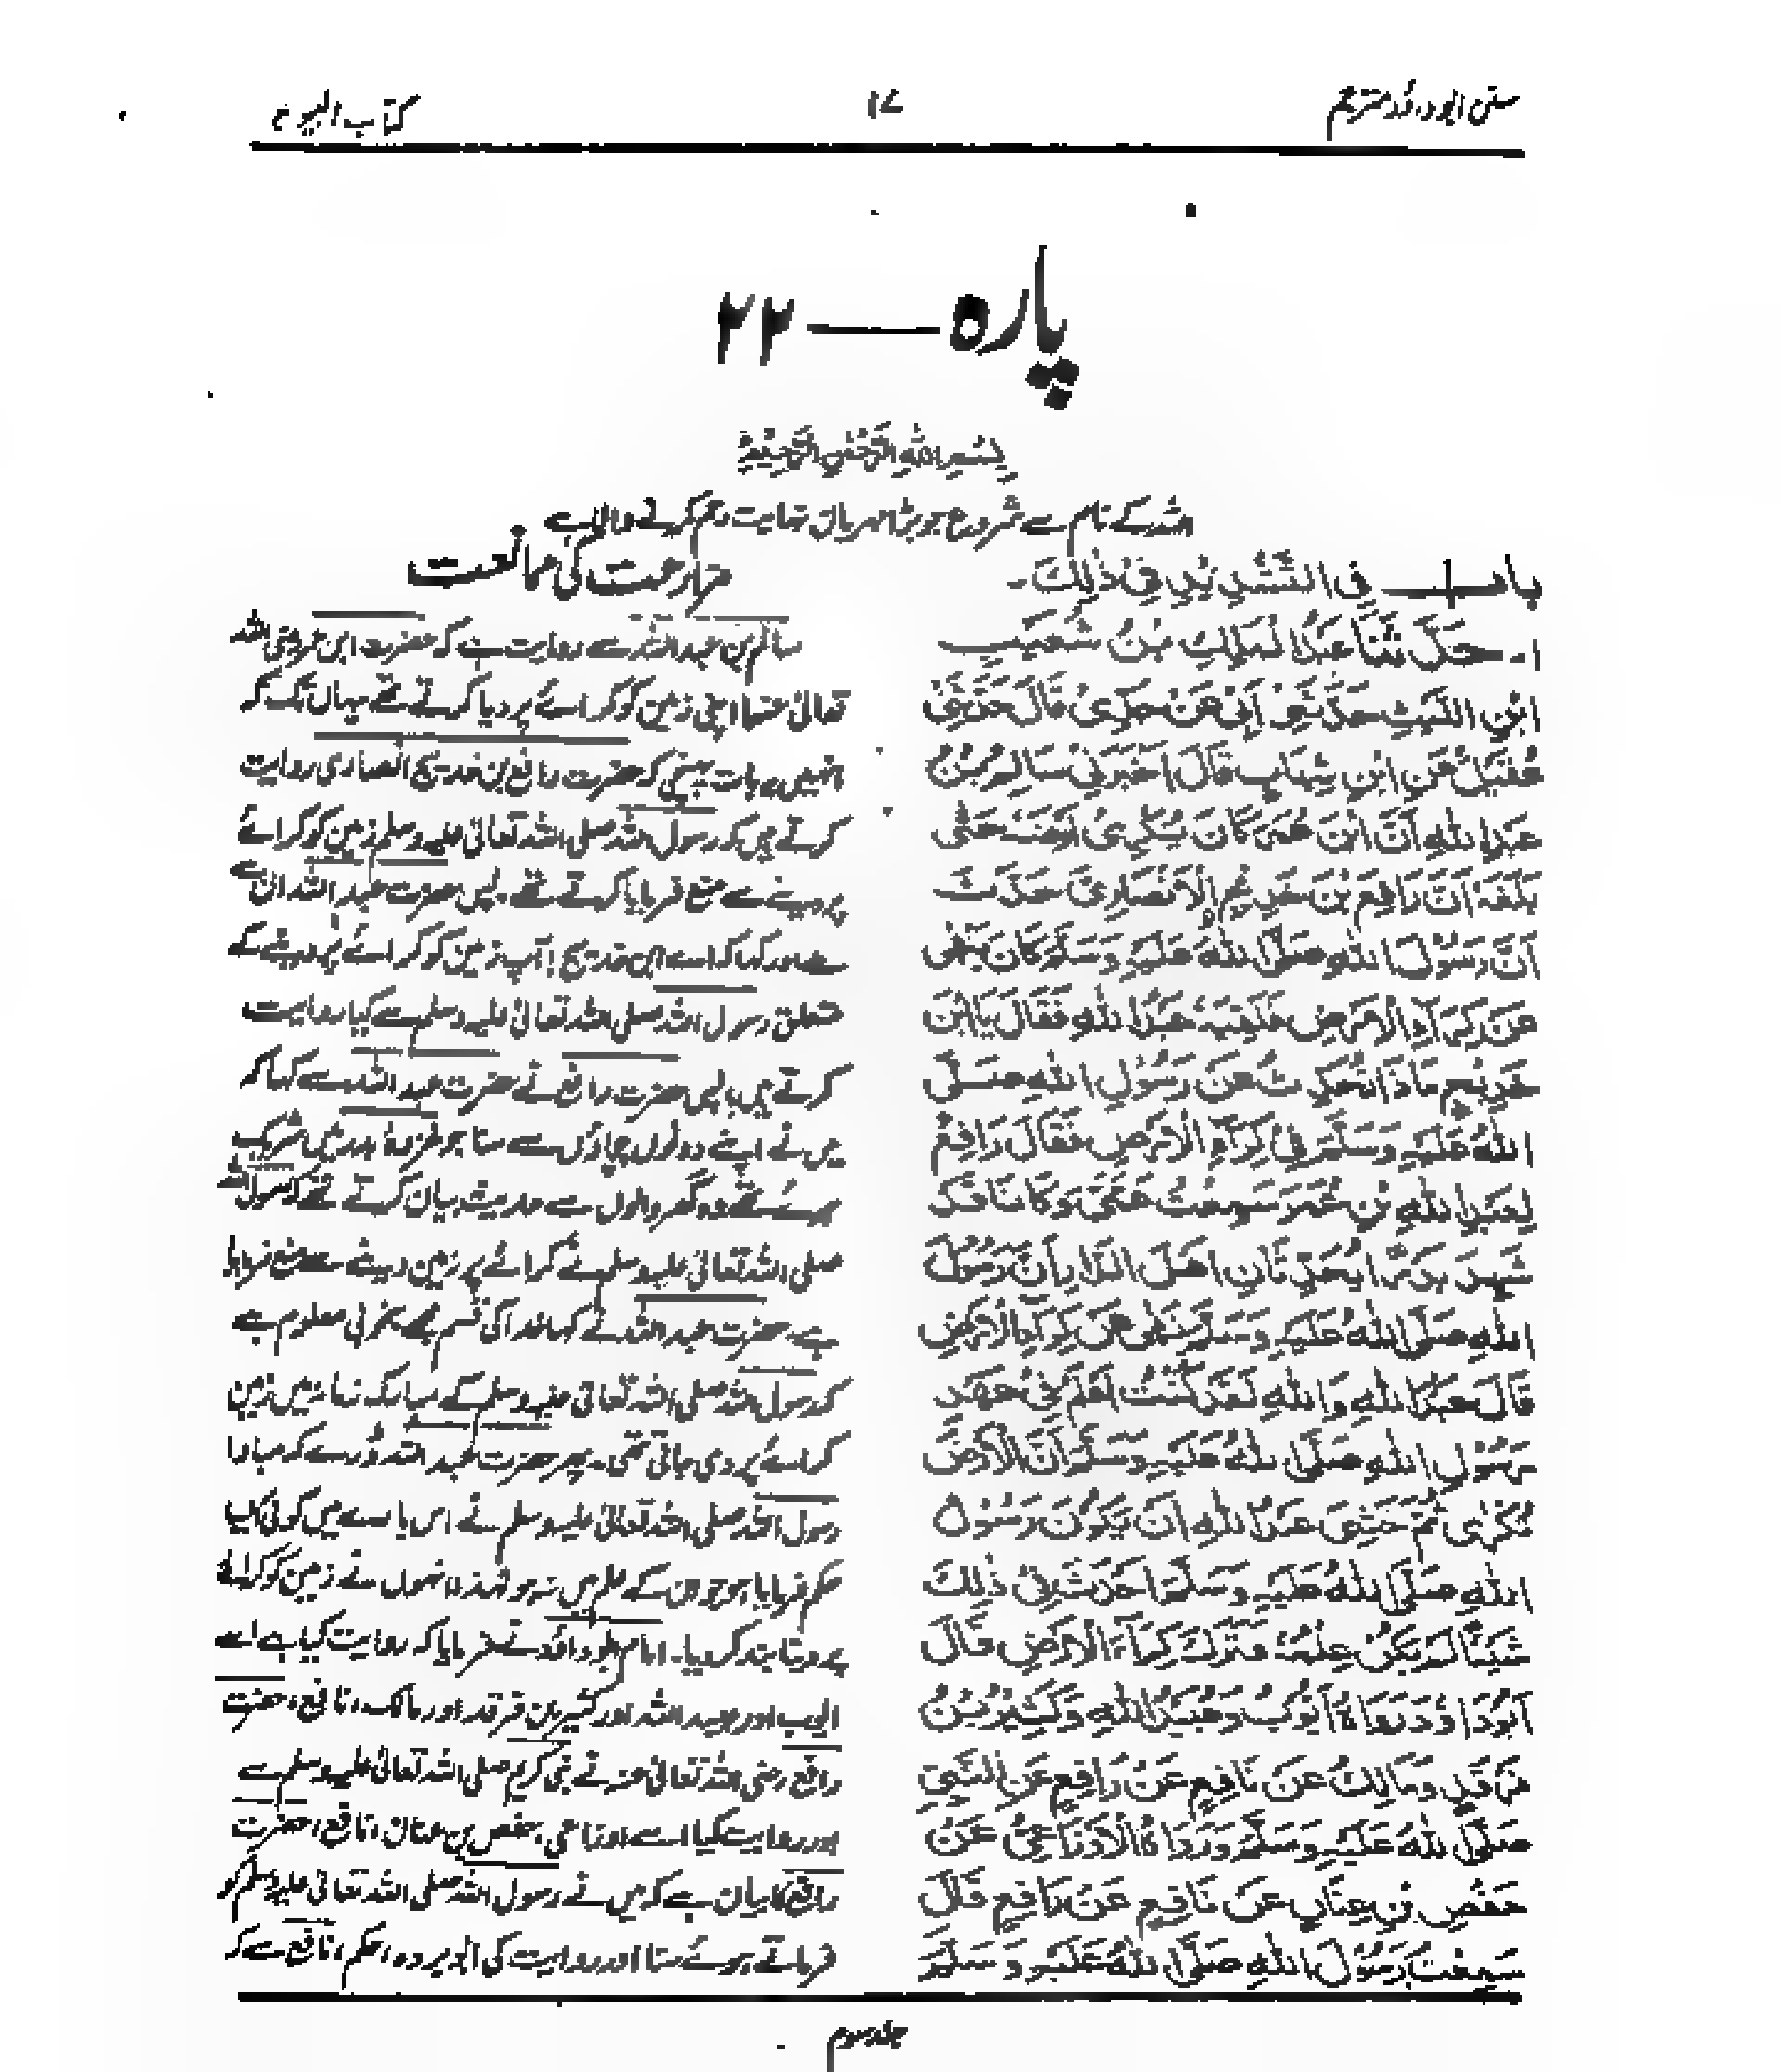 سنن ابوداؤد مترجم
۱۷
کتاب البیوع
پارہ — ۲۲
بِسْمِ اللهِ الرَّحْمٰنِ الرَّحِيْمِ
اللہ کے نام سے شروع جو بڑا مہربان نہایت رحم کرنے والا ہے
باب فِي التَّشْدِيْدِ فِيْ ذٰلِكَ۔
۱۔ حَدَّثَنَا عَبْدُ الْمَلِكِ بْنُ شُعَيْبِ
ابْنِ اللَّيْثِ حَدَّثَنِيْ اَبِيْ عَنْ جَدِّيْ قَالَ حَدَّثَنِيْ
عُقَيْلٌ عَنِ ابْنِ شِهَابٍ قَالَ اَخْبَرَنِيْ سَالِمُ بْنُ
عَبْدِ اللهِ اَنَّ ابْنَ عُمَرَ كَانَ يُكْرِيْ اَرْضَهٗ حَتّٰى
بَلَغَهٗ اَنَّ رَافِعَ بْنَ خَدِيْجٍ الْاَنْصَارِيَّ حَدَّثَ
اَنَّ رَسُوْلَ اللهِ صَلَّى اللهُ عَلَيْهِ وَسَلَّمَ كَانَ يَنْهٰى
عَنْ كِرَاءِ الْاَرْضِ فَلَقِيَهٗ عَبْدُ اللهِ فَقَالَ يَا ابْنَ
خَدِيْجٍ مَاذَا تُحَدِّثُ عَنْ رَسُوْلِ اللهِ صَلَّى
اللهُ عَلَيْهِ وَسَلَّمَ فِيْ كِرَاءِ الْاَرْضِ فَقَالَ رَافِعٌ
لِعَبْدِ اللهِ بْنِ عُمَرَ سَمِعْتُ عَمَّيَّ وَكَانَا قَدْ
شَهِدَا بَدْرًا يُحَدِّثَانِ اَهْلَ الدَّارِ اَنَّ رَسُوْلَ
اللهِ صَلَّى اللهُ عَلَيْهِ وَسَلَّمَ نَهٰى عَنْ كِرَاءِ الْاَرْضِ
قَالَ عَبْدُ اللهِ وَاللهِ لَقَدْ كُنْتُ اَعْلَمُ فِيْ عَهْدِ
رَسُوْلِ اللهِ صَلَّى اللهُ عَلَيْهِ وَسَلَّمَ اَنَّ الْاَرْضَ
تُكْرٰى ثُمَّ خَشِيَ عَبْدُ اللهِ اَنْ يَكُوْنَ رَسُوْلُ
اللهِ صَلَّى اللهُ عَلَيْهِ وَسَلَّمَ اَحْدَثَ فِيْ ذٰلِكَ
شَيْئًا لَمْ يَكُنْ عِلْمُهٗ فَتَرَكَ كِرَاءَ الْاَرْضِ قَالَ
اَبُوْدَاوُدَ رَوَاهُ اَيُّوْبُ وَعُبَيْدُ اللهِ وَكَثِيْرُ بْنُ
فَرْقَدٍ وَمَالِكٌ عَنْ نَافِعٍ عَنْ رَافِعٍ عَنِ النَّبِيِّ
صَلَّى اللهُ عَلَيْهِ وَسَلَّمَ وَرَوَاهُ الْاَوْزَاعِيُّ عَنْ
حَفْصِ بْنِ عِنَانٍ عَنْ نَافِعٍ عَنْ رَافِعٍ قَالَ
سَمِعْتُ رَسُوْلَ اللهِ صَلَّى اللهُ عَلَيْهِ وَسَلَّمَ
مزارعت کی ممانعت
سالم بن عبد اللہ سے روایت ہے کہ حضرت ابن عمر رضی اللہ
تعالیٰ عنہما اپنی زمین کو کرائے پر دیا کرتے تھے یہاں تک کہ
انہیں یہ بات پہنچی کہ حضرت رافع بن خدیج انصاری روایت
کرتے ہیں کہ رسول اللہ صلی اللہ تعالیٰ علیہ وسلم زمین کو کرائے
پر دینے سے منع فرمایا کرتے تھے۔ پس حضرت عبد اللہ ان سے
ملے اور کہا کہ اے ابن خدیج! آپ زمین کو کرائے پر دینے کے
متعلق رسول اللہ صلی اللہ تعالیٰ علیہ وسلم سے کیا روایت
کرتے ہیں؟ پس حضرت رافع نے حضرت عبد اللہ سے کہا کہ
میں نے اپنے دونوں چچاؤں سے سنا جو غزوۂ بدر میں شریک
ہوئے تھے وہ گھر والوں سے حدیث بیان کرتے تھے کہ رسول اللہ
صلی اللہ تعالیٰ علیہ وسلم نے کرائے پر زمین دینے سے منع فرمایا
ہے۔ حضرت عبد اللہ نے کہا خدا کی قسم مجھے بخوبی معلوم ہے
کہ رسول اللہ صلی اللہ تعالیٰ علیہ وسلم کے مبارک زمانہ میں زمین
کرائے پر دی جاتی تھی۔ پھر حضرت عبد اللہ ڈرے کہ مبادا
رسول اللہ صلی اللہ تعالیٰ علیہ وسلم نے اس بارے میں کوئی ایسا
حکم فرمایا ہو جو ان کے علم میں نہ ہو لہٰذا انہوں نے زمین کو کرائے
پر دینا بند کر دیا۔ امام ابوداؤد نے فرمایا کہ روایت کیا ہے اسے
ایوب اور عبید اللہ اور کثیر بن فرقد اور مالک، نافع، حضرت
رافع رضی اللہ تعالیٰ عنہ نے نبی کریم صلی اللہ تعالیٰ علیہ وسلم سے
اور روایت کیا اسے اوزاعی، حفص بن عنان، نافع، حضرت
رافع کا بیان ہے کہ میں نے رسول اللہ صلی اللہ تعالیٰ علیہ وسلم کو
فرماتے ہوئے سنا اور روایت کی ابو یردہ، حکم، نافع سے کہ
جلد سوم